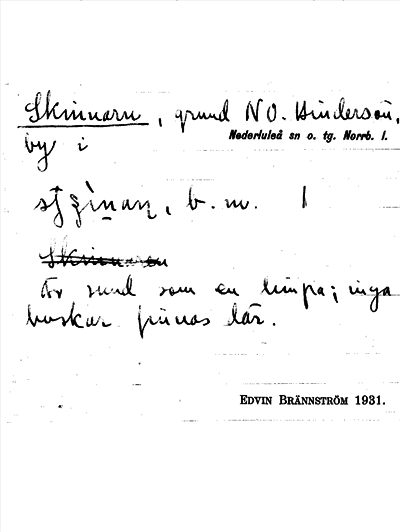 Skinnarn, grund NO. Hindersön,
Nederluleå sn o. tg. Norrb. l.
by i
b. m. 1
Är rund som en limpa; inga
buskar finnas där.
EDVIN BRÄNNSTRÖM 1931.